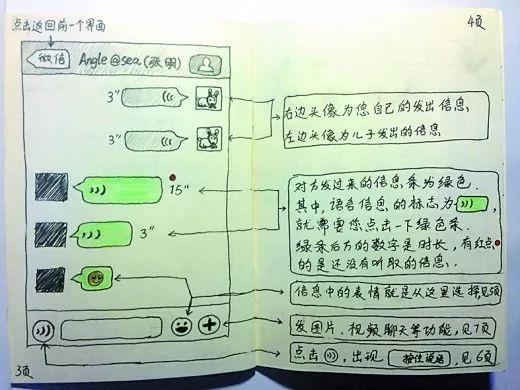 点击返回前一个界面
4页
微信
Angle@sea(张明)
3"
3"
15"
3"
右边头像为您自己的发出信息、
左边头像为儿子发出的信息
对方发过来的信息条为绿色.
其中,语音信息的标志为
就需要您点击一下绿色条.
绿条后方的数字是时长,有红点
的是还没有听取的信息.
信息中的表情就是从这里选择见5页
发图片、视频聊天等功能,见7页
点击 ,出现 按住说话 ,见6页
3页